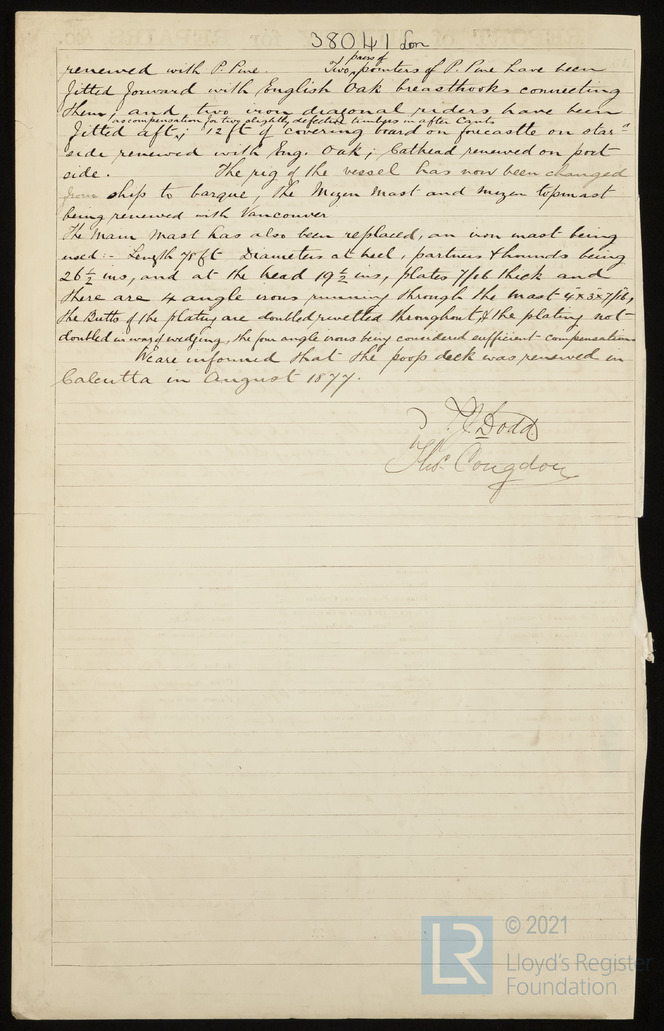 38041 Lon
renewed with P. Pine. Two pairs of pointers of P. Pine have been
fitted forward with English Oak breasthooks connecting
them, and two iron diagonal riders have been
as compensation for two slightly defective timbers in after Cants
fitted aft; 12 ft of covering board on forecastle on star-
side renewed with Eng. Oak; Cathead renewed on port
side. The rig of the vessel has now been changed
from ship to barque, the Mizen Mast and Mizen topmast
being renewed with Vancouver
The Main Mast has also been replaced, an iron mast being
used:- Length 78 ft Diameters at heel, partners & hounds being
26 1/2 ins, and at the head 19 1/2 ins, plates 7/16 thick and
there are 4 angle irons running through the mast 4" x 3" x 7/16,
The Butts of the plating are doubled rivetted throughout & the plating not
doubled in way of wedging, the four angle irons being considered sufficient compensation
We are informed that the poop deck was renewed in
Calcutta in August 1877.
J. J. Dodd
Thos. Congdon
© 2021
LR
Lloyd's Register
Foundation